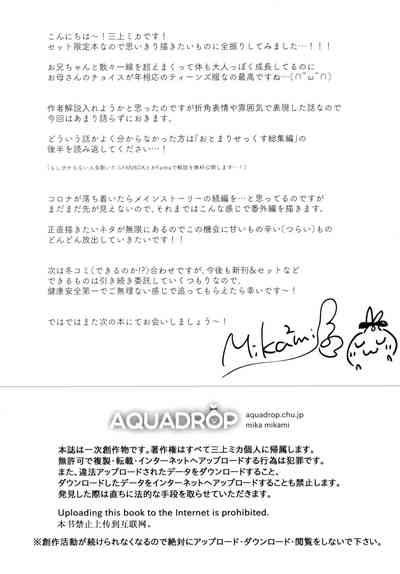 こんにちは～！三上ミカです！
セット限定本なので思いきり描きたいものに全振りしてみました…！！！
お兄ちゃんと散々一線を超えまくって体も大人っぽく成長してるのに
お母さんのチョイスが年相応のティーンズ服なの最高ですね…(∩˘ω˘∩)
作者解説入れようかと思ったのですが折角表情や雰囲気で表現した話なので
今回はあまり語らずにおきます。
どういう話かよく分からなかった方は『おとまりせっくす総集編』の
後半を読み返してください…！
コロナが落ち着いたらメインストーリーの続編を…と思ってるのですが
まだまだ先が見えないので、それまではこんな感じで番外編を描きます。
正直描きたいネタが無限にあるのでこの機会に甘いもの辛い(つらい)もの
どんどん放出していきたいです！！
次は冬コミ(できるのか!?)合わせですが、今後も新刊&セットなど
できるものは引き続き委託していくつもりなので、
健康安全第一でご無理ない感じで追ってもらえたら幸いです～！
ではではまた次の本にてお会いしましょう～！
Mikami
AQUADROP
aquadrop.chu.jp
mika mikami
本誌は一次創作物です。著作権はすべて三上ミカ個人に帰属します。
無許可で複製・転載・インターネットへアップロードする行為は犯罪です。
また、違法アップロードされたデータをダウンロードすること、
ダウンロードしたデータをインターネットへアップロードすることも禁止します。
発見した際は直ちに法的な手段を取らせていただきます。
Uploading this book to the Internet is prohibited.
本书禁止上传到互联网。
※創作活動が続けられなくなるので絶対にアップロード・ダウンロード・閲覧をしないで下さい。